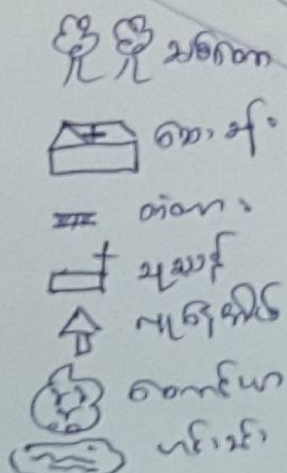 သစ်တော
ဆေးခန်း
တံတား
သုသာန်
လူနေအိမ်
တောင်ယာ